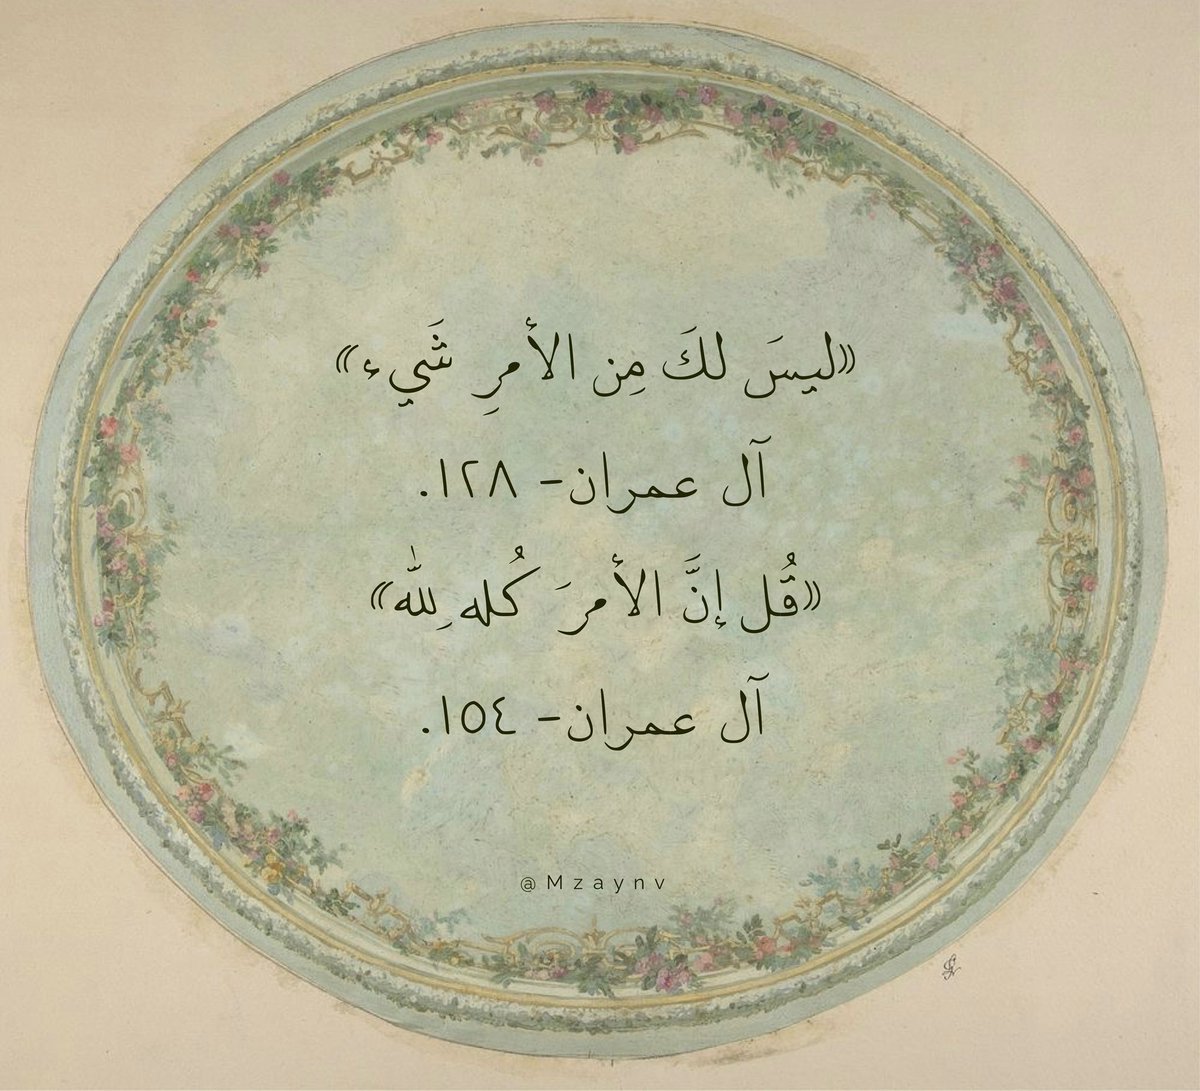 «ليسَ لكَ مِن الأمرِ شَيء»
آل عمران- ١٢٨.
«قُل إنَّ الأمرَ كُله لِلّٰه»
آل عمران- ١٥٤.
@Mzaynv